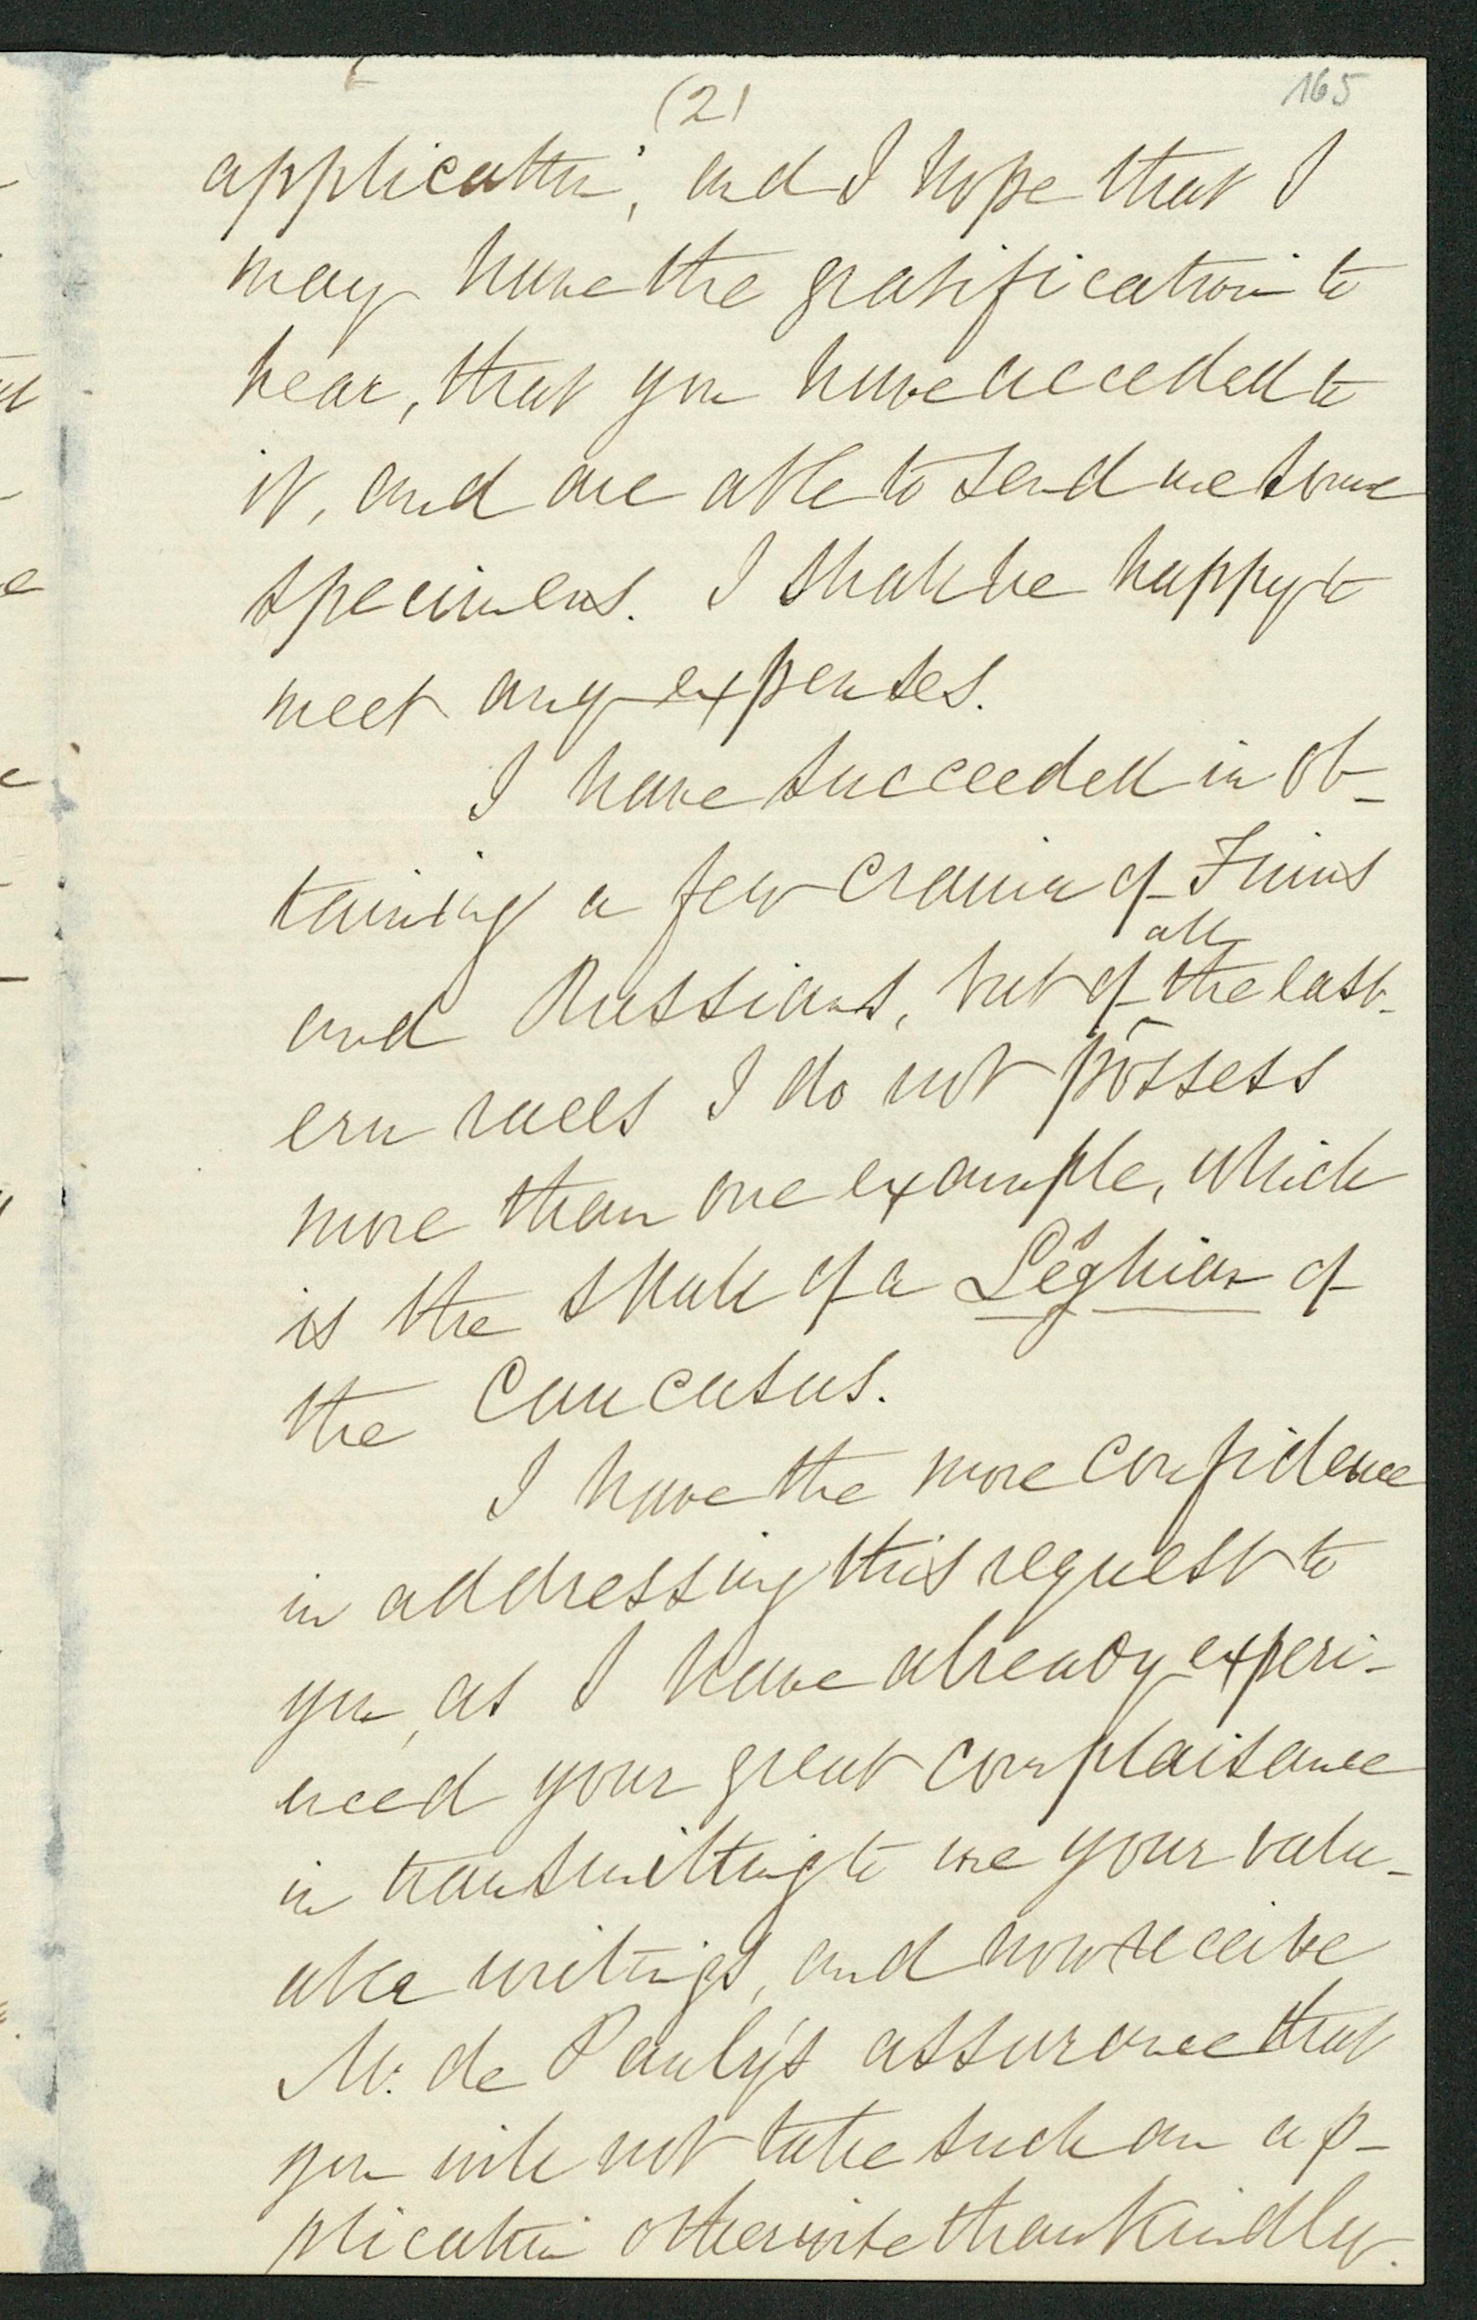 165
(2)
application, and I hope that I
may have the gratification to
hear, that you have acceded to
it, and are able to send me some
specimens. I shall be happy to
meet any expenses.
I have succeeded in ob-
taining a few crania of Finns
and Russians, but of all the east-
ern races I do not possess
more than one example, which
is the skull of a Lesghian of
the Caucasus.
I have the more confidence
in addressing this request to
you, as I have already experi-
enced your great complaisance
in transmitting to me your valu-
able writings, and now receive
M. de Pauly's assurance that
you will not take such an ap-
plication otherwise than kindly.